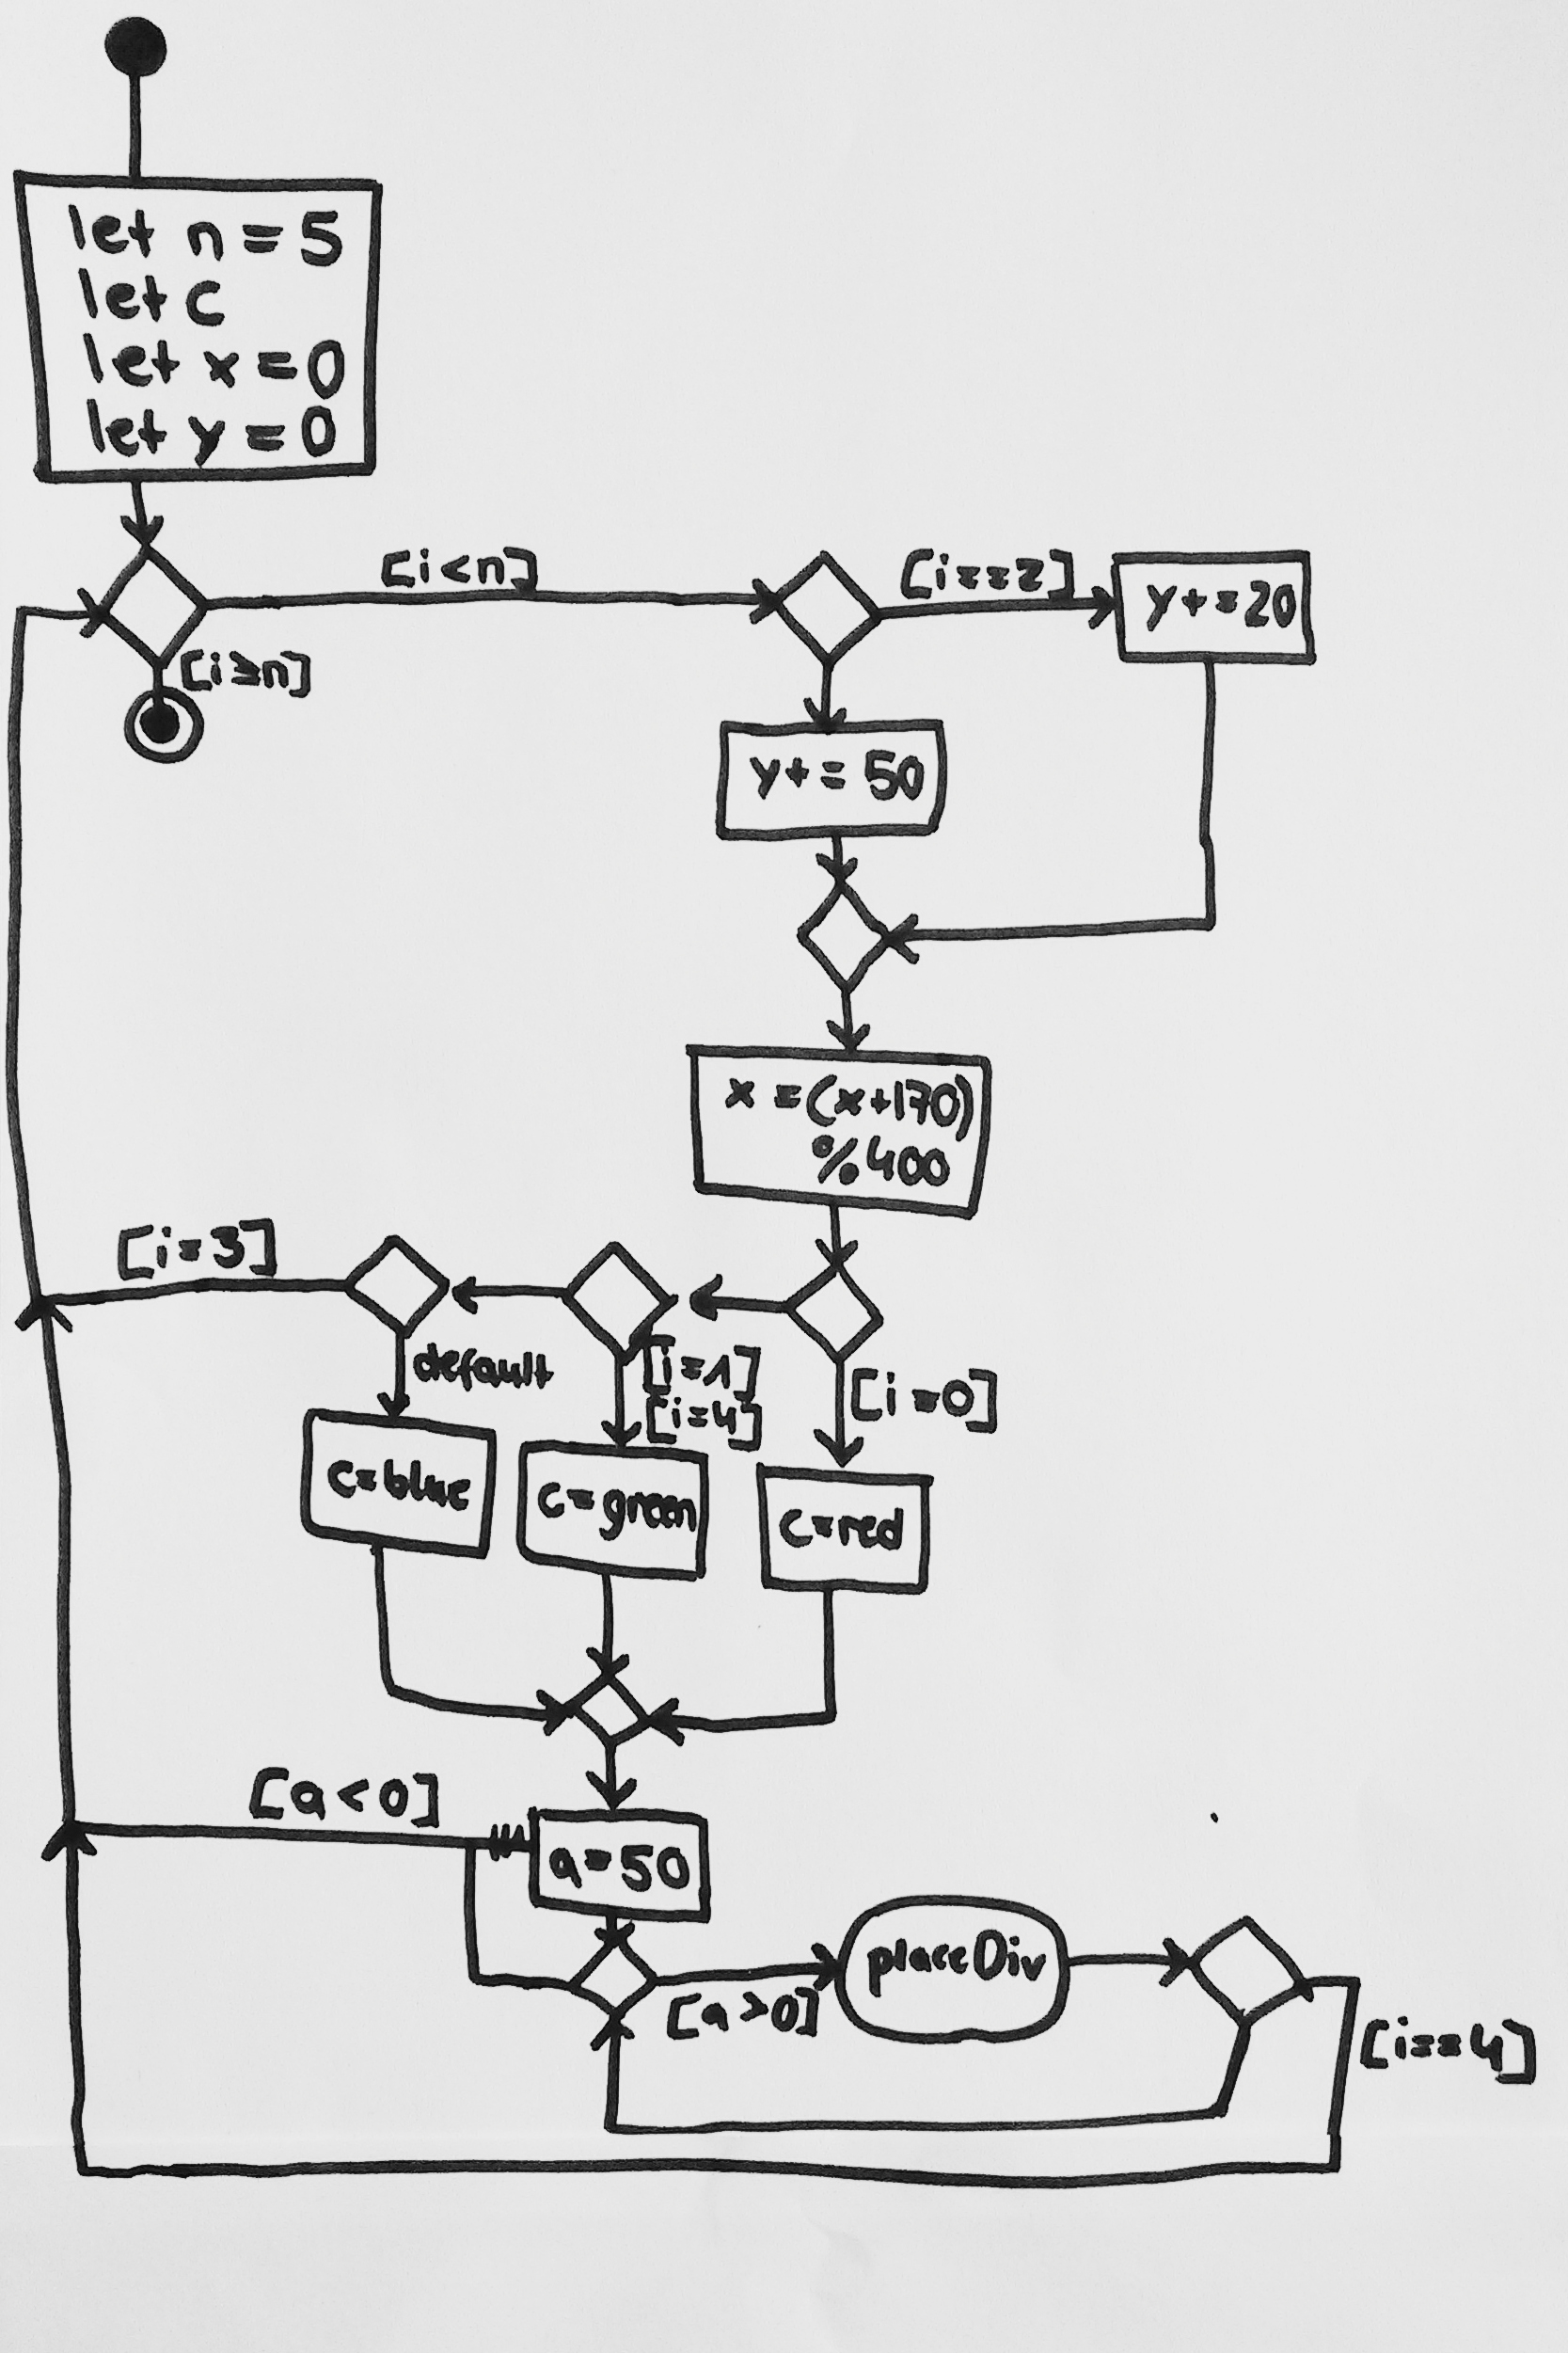 let n = 5
let c
let x = 0
let y = 0
[i<n]
[i==2]
y+=20
[i≥n]
y+= 50
x =(x+170)
%400
[i=3]
default
[i=1]
[i=4]
[i=0]
c=blue
c=green
c=red
[a<0]
a=50
placeDiv
[a>0]
[i==4]